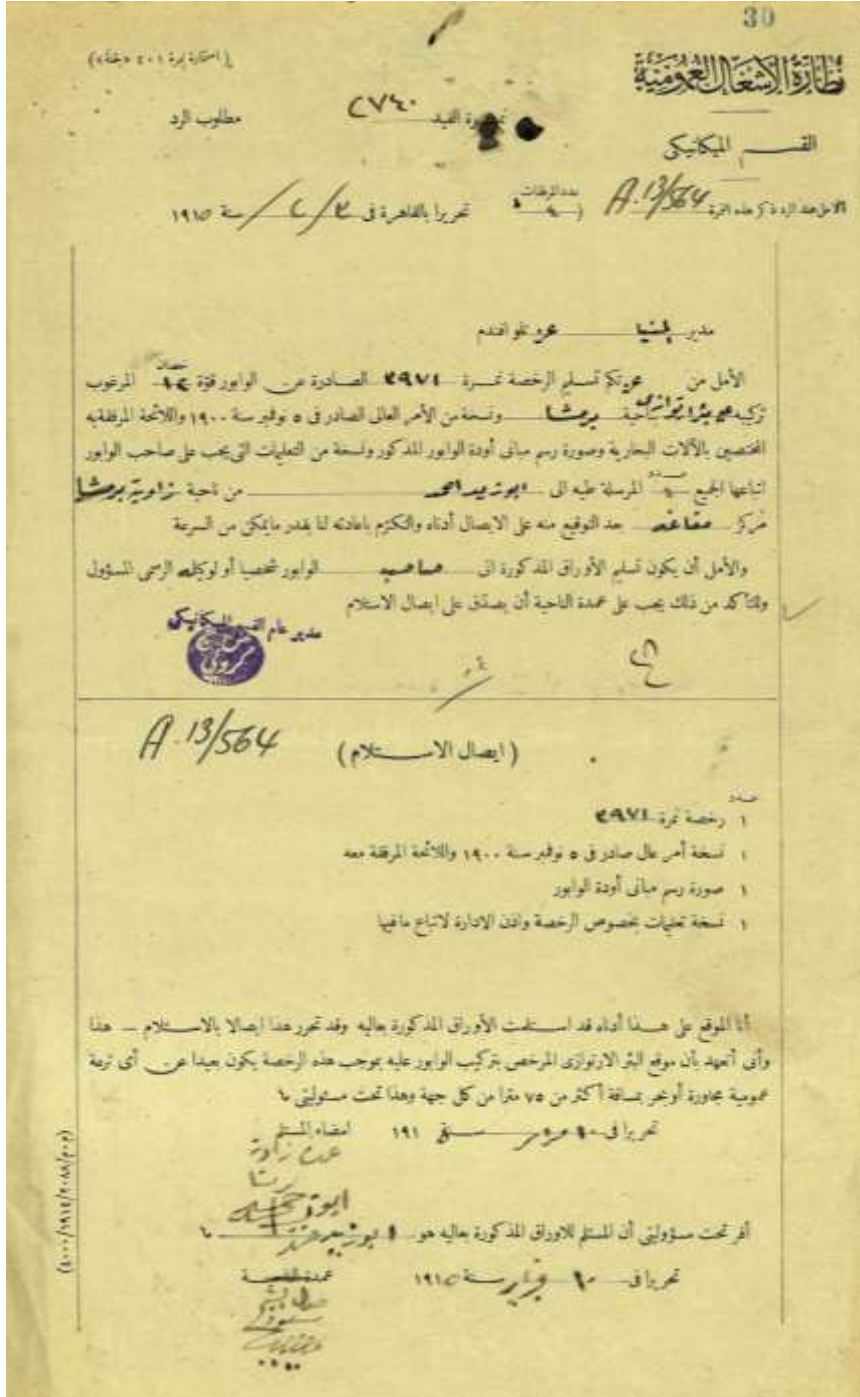 30
(استمارة نمرة ٤٠١ «خلف»)
نظارة الأشغال العمومية
نمرة القيد ٢٧٤٠
مطلوب الرد
القسم الميكانيكى
الامل عند الرد ذكر هذه النمرة A.13/564
عدد المرفقات
تحريرا بالقاهرة فى ٣/٢/ سنة ١٩١٥
مدير المنيا عزتلو افندم
الأمل من عزتكم تسليم الرخصة نمرة ٣٩٧١ الصادرة عن الوابور قوة ١٢ حصان المرغوب
تركيبه على بئر ارتوازى بناحية برمشا ونسخة من الأمر العالى الصادر فى ٥ نوفمبر سنة ١٩٠٠ واللائحة المرفقة به
المختصين بالآلات البخارية وصورة رسم مبانى أودة الوابور المذكور ونسخة من التعليمات التى يجب على صاحب الوابور
اتباعها الجميع عدد المرسلة طيه الى ابوزيد احمد من ناحية زاوية برمشا
مركز مغاغه بعد التوقيع منه على الايصال أدناه والتكرم باعادته لنا بقدر مايمكن من السرعة
والأمل أن يكون تسليم الأوراق المذكورة الى صاحب الوابور شخصيا أو لوكيله الرسمى المسؤول
وللتأكد من ذلك يجب على عمدة الناحية أن يصدّق على ايصال الاستلام
مدير عام القسم الميكانيكى
A.13/564
(ايصال الاستلام)
عدد
١ رخصة نمرة ٣٩٧١
١ نسخة أمر عال صادر فى ٥ نوفمبر سنة ١٩٠٠ واللائحة المرفقة معه
١ صورة رسم مبانى أودة الوابور
١ نسخة تعليمات بخصوص الرخصة واذن الادارة لاتباع مافيها
أنا الموقع على هذا أدناه قد استلمت الأوراق المذكورة بعاليه وقد تحرر هذا ايصالا بالاستلام — هذا
وأنى أتعهد بأن موقع البئر الارتوازى المرخص بتركيب الوابور عليه بموجب هذه الرخصة يكون بعيدا عن أى ترعة
عمومية مجاورة أو بحر بمسافة أكثر من ٧٥ مترا من كل جهة وهذا تحت مسئوليتى
تحريرا فى سنة ١٩١
امضاء المستلم
أقر تحت مسؤوليتى أن المستلم للاوراق المذكورة بعاليه هو ابوزيد
تحريرا فى ١٠ فبراير سنة ١٩١٥
عمدة الناحية
(٤٠٠٠/١٩١٤/٢٠٨٨/م٠م)